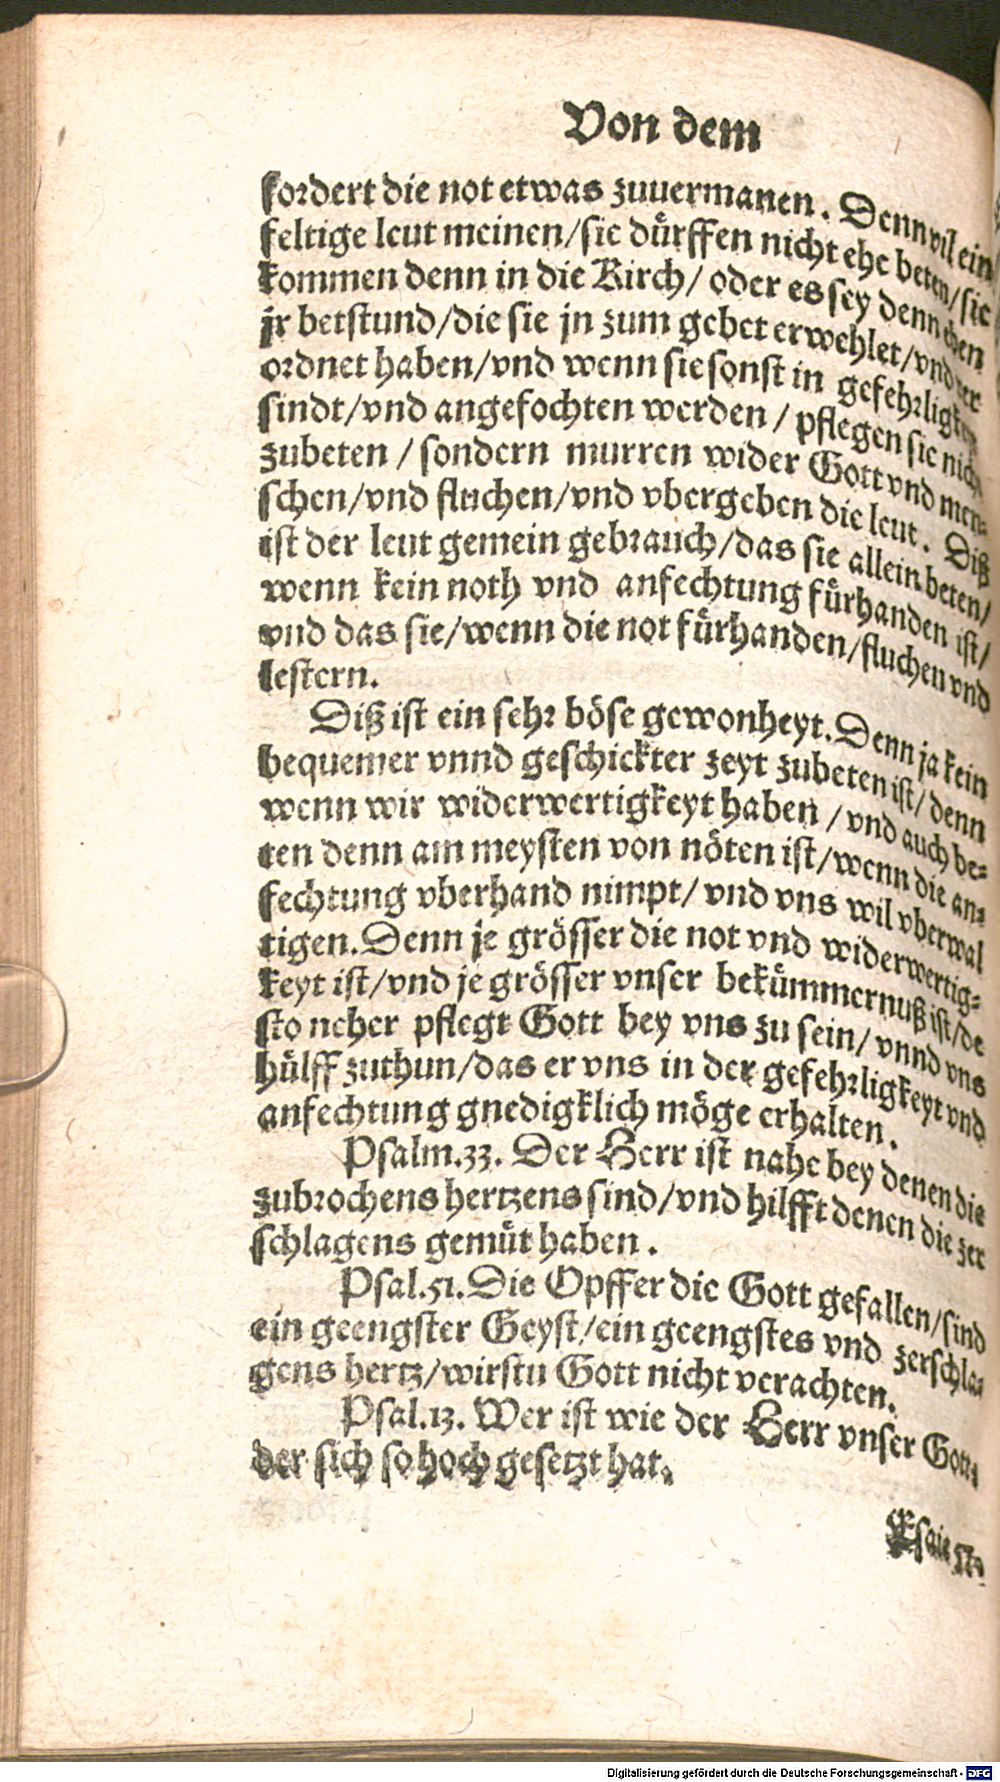 Von dem
fordert die not etwas zuuermanen. Denn vil ein
feltige leut meinen/sie dürffen nicht ehe beten/sie
kommen denn in die Kirch/ oder es sey denn eben
jr betstund/die sie jn zum gebet erwehlet/vnd ver
ordnet haben/vnd wenn sie sonst in gefehrligkeyt
sindt/vnd angefochten werden / pflegen sie nicht
zubeten / sondern murren wider Gott vnd men-
schen/vnd fluchen/vnd vbergeben die leut. Diß
ist der leut gemein gebrauch/das sie allein beten/
wenn kein noth vnd anfechtung fürhanden ist/
vnd das sie/wenn die not fürhanden/fluchen vnd
lestern.
Diß ist ein sehr böse gewonheyt. Denn ja kein
bequemer vnnd geschickter zeyt zubeten ist/ denn
wenn wir widerwertigkeyt haben /vnd auch be-
ten denn am meysten von nöten ist/wenn die an-
fechtung vberhand nimpt/ vnd vns wil vberwal
tigen. Denn je grösser die not vnd widerwertig-
keyt ist/vnd je grösser vnser bekümmernuß ist/de
sto neher pflegt Gott bey vns zu sein/ vnnd vns
hülff zuthun/das er vns in der gefehrligkeyt vnd
anfechtung gnedigklich möge erhalten.
Psalm.33. Der Herr ist nahe bey denen die
zubrochens hertzens sind/vnd hilfft denen die zer
schlagens gemüt haben.
Psal.51. Die Opffer die Gott gefallen/sind
ein geengster Geyst/ein geengstes vnd zerschla-
gens hertz/wirstu Gott nicht verachten.
Psal.13. Wer ist wie der Herr vnser Gott
der sich so hoch gesetzt hat.
Esaie
Digitalisierung gefördert durch die Deutsche Forschungsgemeinschaft - DFG